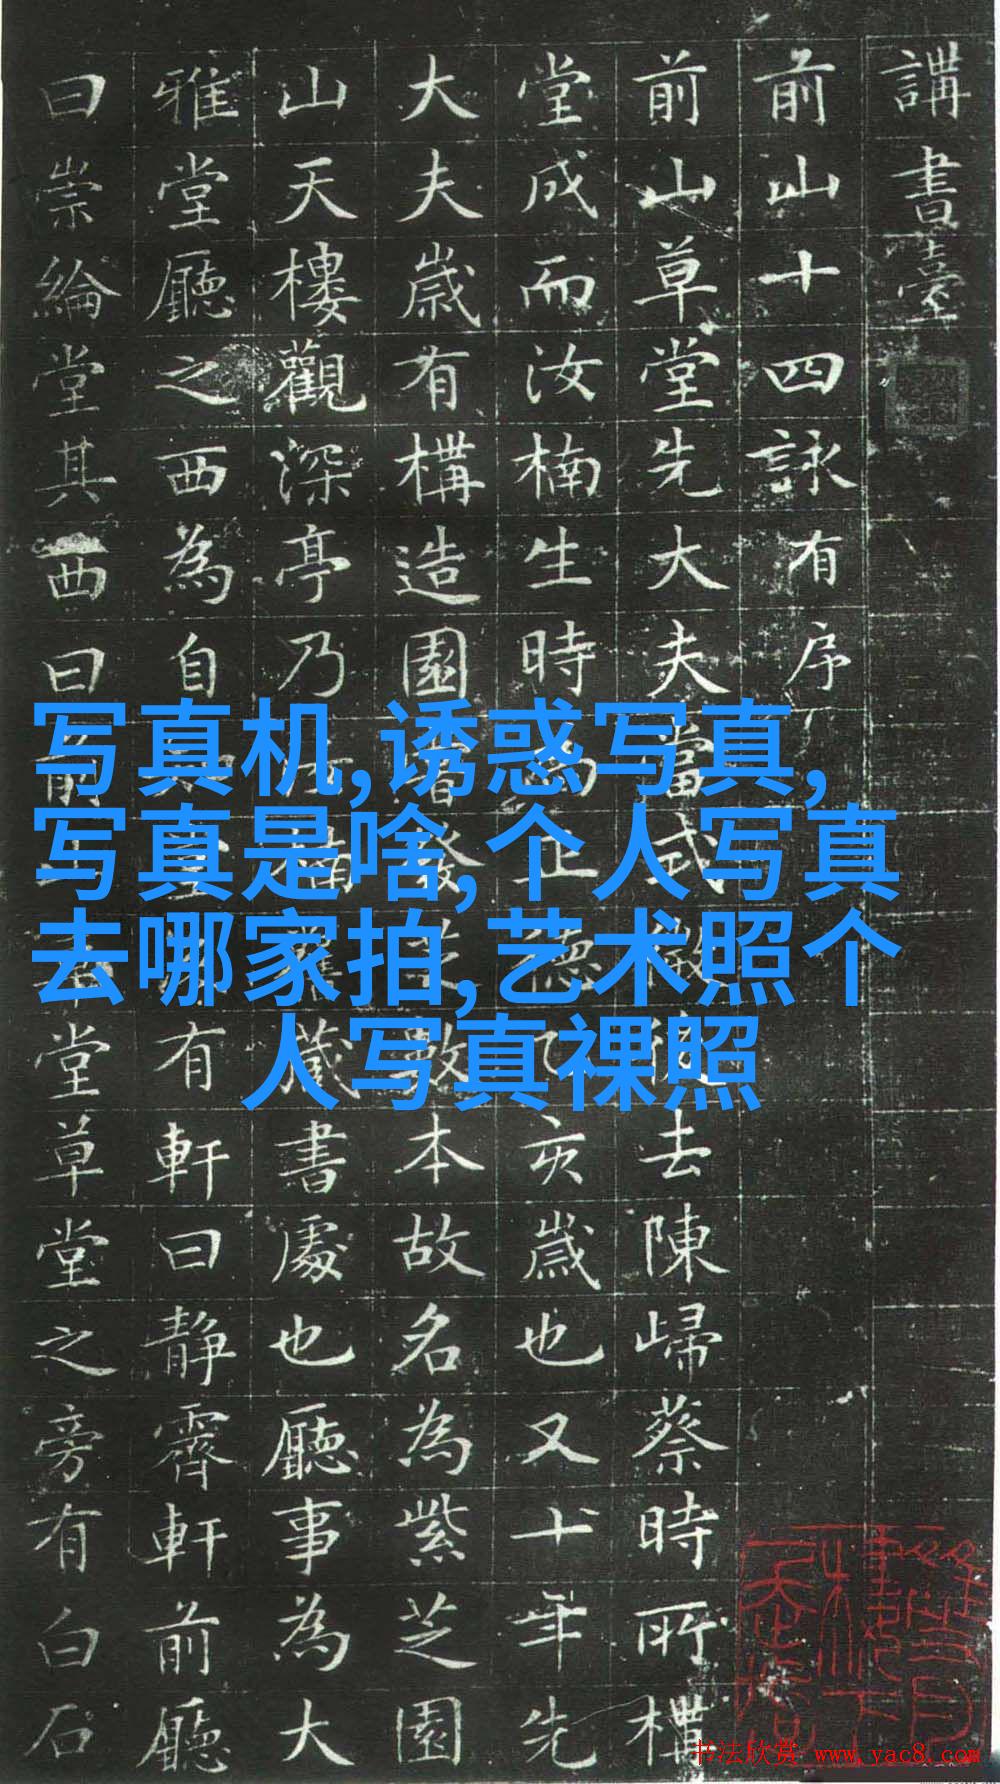 講書臺
前山十四詠有序
前山草堂先大夫當式微去陳歸蔡時所
堂成而汝楠生時為正德亥歲也又十年先
大夫歲有構造園發芝數本故名為紫芝園
山天樓觀深亭乃藏書處也廳事為大
雅堂廳之西為自有軒曰靜齋軒前廳
曰崇綸堂其西曰前堂草堂之旁有白石
写真机,诱惑写真,
写真是啥,个人写真
去哪家拍,艺术照个
人写真祼照
书法欣赏 www.yac8.com